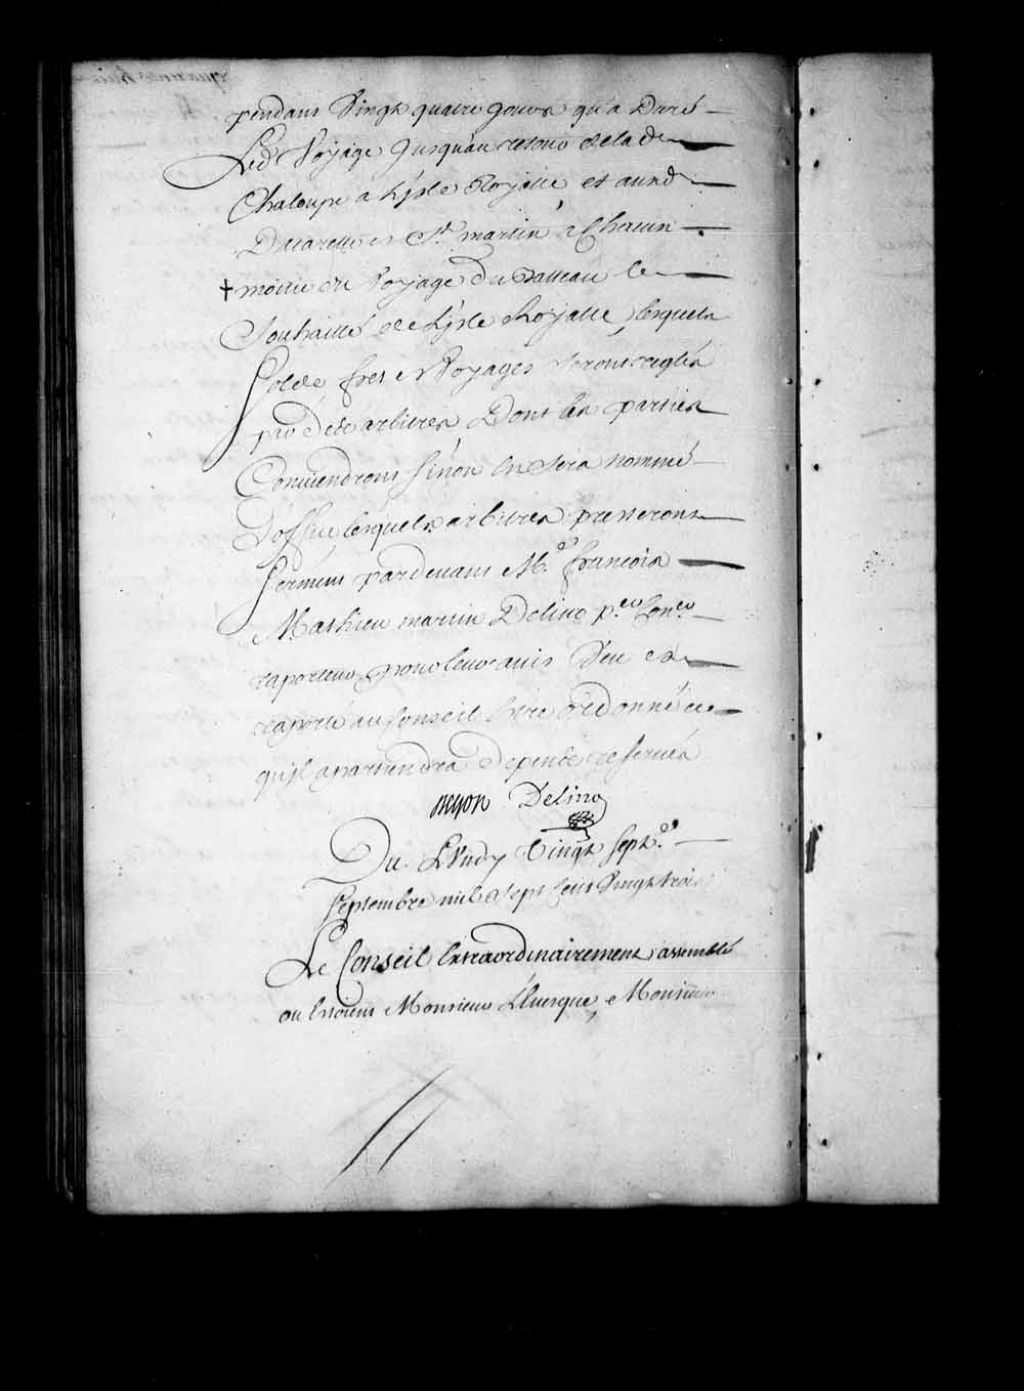 pendans Vingt quatre jours qu'a Duré
Led.t Voyage Jusqu'au retour de lad.
Chaloupe a L'jsle Royalle et aund.
Ducarette et St. martin a Chacun
+ moitié du Voyage du Batteau le
Souhaitté de L'jsle Royalle, lesquels
Solde fret et Voyages seront reglés
par des arbitres Dont les parties
Conviendront sinon En sera nommé
D'office lesquels arbitres presterons
serment pardevant Me. françois
Mathieu martin Delino p.er Con.er
raporteur, pour leur avis Veu et
raporté au Conseil Estre ordonné ce
qu'jl apartiendra depends reservés
Delino
Du Lundy Vingt sept.e
Septembre mil sept Cens Vingt trois
Le Conseil Extraordinairement assemblé
ou Estoient Monsieur L'Euesque, Monsieur